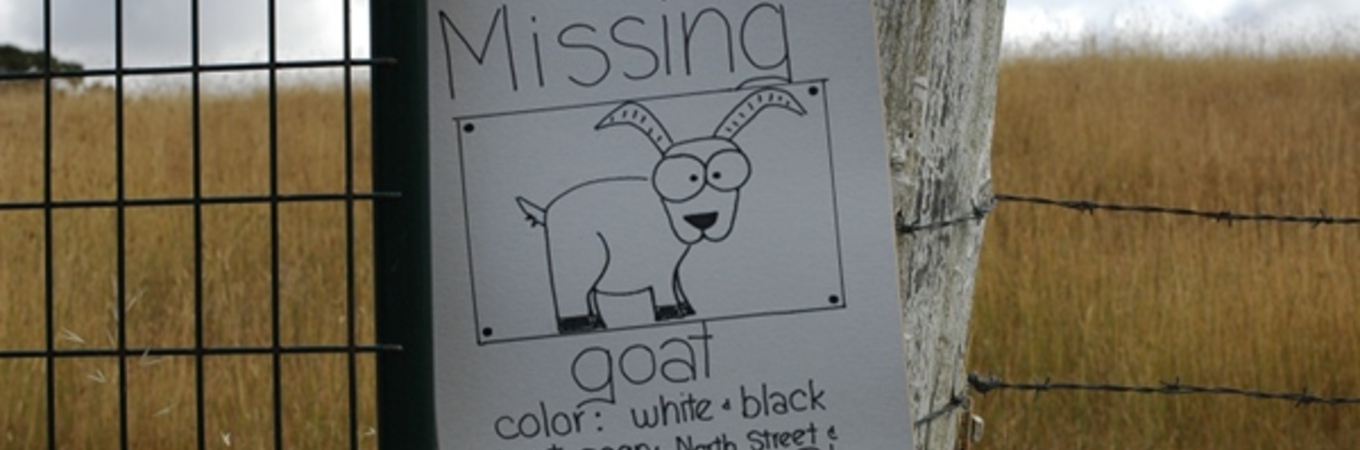 Missing
goat
color: white & black
North Street &